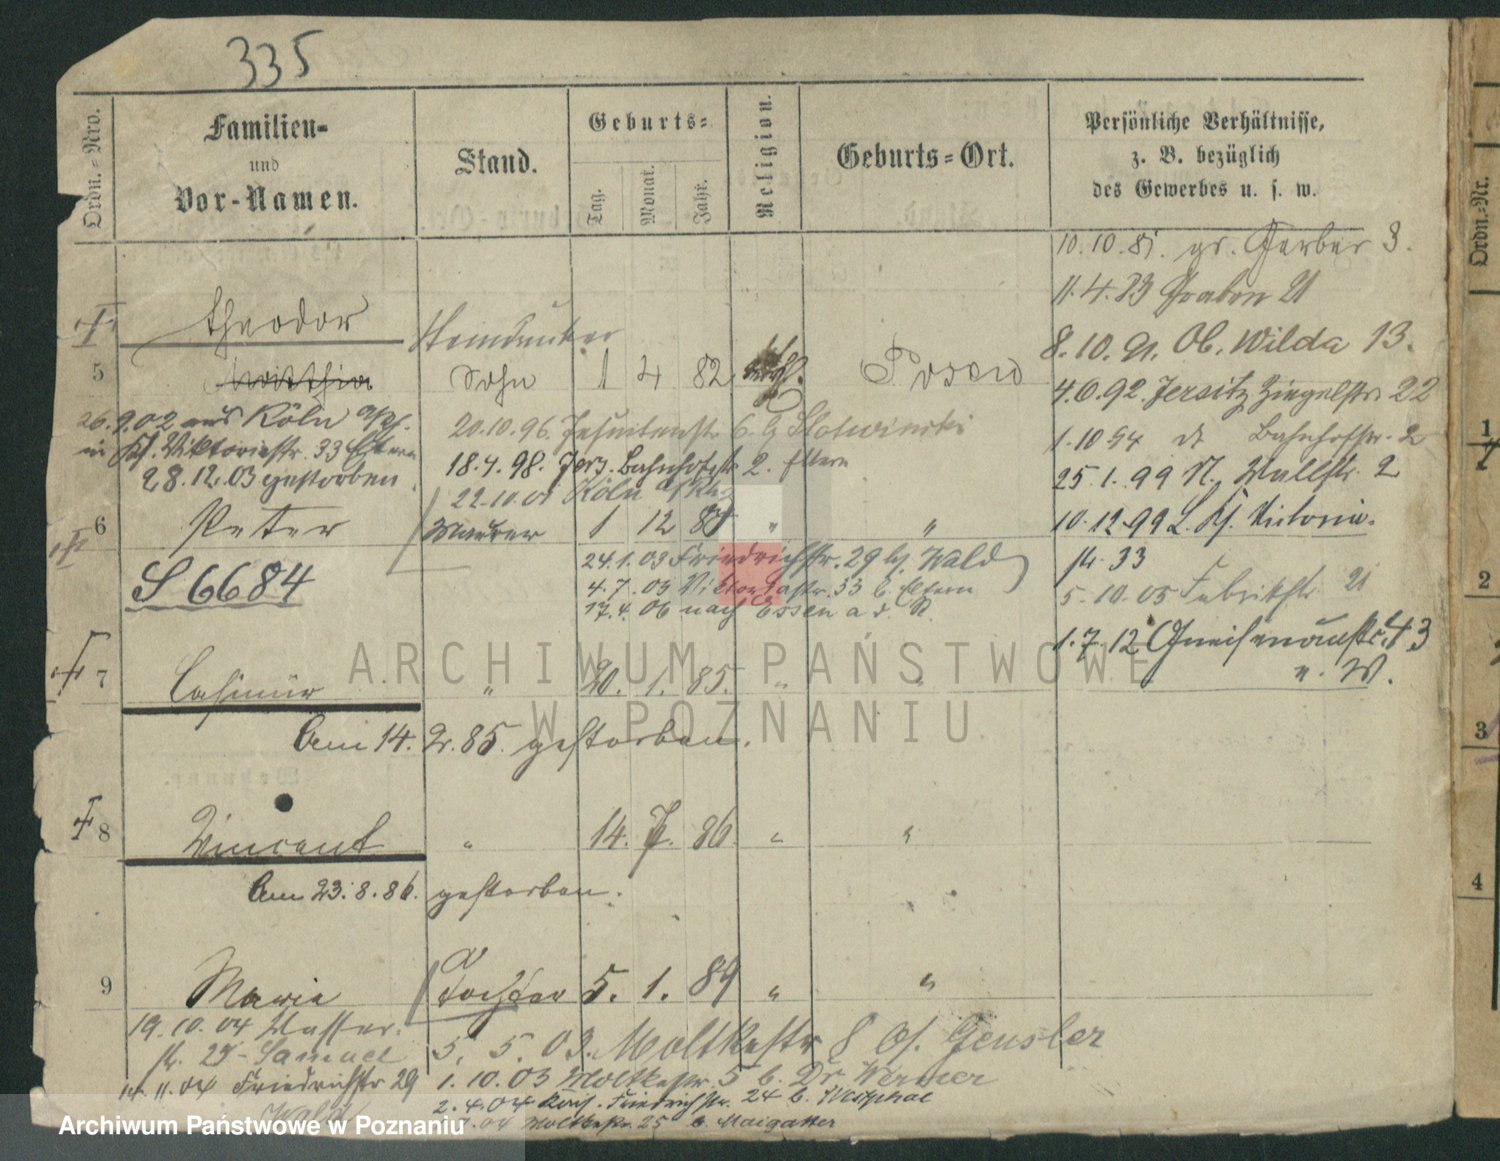 335
Ordn.-Nro.
Familien-
und
Vor-Namen.
Stand.
Geburts-
Tag.
Monat.
Jahr.
Religion.
Geburts-Ort.
Persönliche Verhältnisse,
z. B. bezüglich
des Gewerbes u. s. w.
Ordn.-Nr.
10.10.81. gr. Gerber 3.
11.4.83 Graben 21
8.10.91. Ob. Wilda 13.
4.6.92. Jersitz Ziegelstr. 22
1.10 94 Bahnhofstr. 2
25.1.99 N. Wallstr. 2
10.12.99 L. Kf. Victoria-
str. 33
5.10.05 Fabrikstr. 21
1.7.12 Gneisenaustr. 43
Theodor
5 Sohn 1 4 82 Posen
26.9.02 aus Köln
in Kf. Viktoriastr. 33 Eltern
28.12.03 gestorben
20.10.96. Jesuitenstr. 6. b Slotwinski
18.4.98. Jers. Bahnhofstr. 2. Eltern
22.10.01 Köln a/Rh
6 Peter Maurer 1 12 83 " "
S 6684
24.1.03 Friedrichstr. 29 b/ Wald
4.7.03 Viktoriastr. 33 b. Eltern
17.4.06 nach Essen a. d. R.
7 Casimir " 20. 1. 85. " "
Am 14. 2. 85. gestorben.
8 Vincent " 14. 7. 86. " "
Am 23.8.86. gestorben.
9 Maria Tochter 5. 1. 89 " "
19.10.04 Wasser-
str. 25 Samuel
14.11.04 Friedrichstr 29
Wald
5. 5. 03. Moltkestr 8 b/. Geusler
1.10.03 Moltkestr. 5 b. Dr Werner
2.4.04 Friedrichstr. 24 b. Westphal
.04 Moltkestr. 25 b Maigatter
1
2
3
4
ARCHIWUM PAŃSTWOWE
W POZNANIU
Archiwum Państwowe w Poznaniu